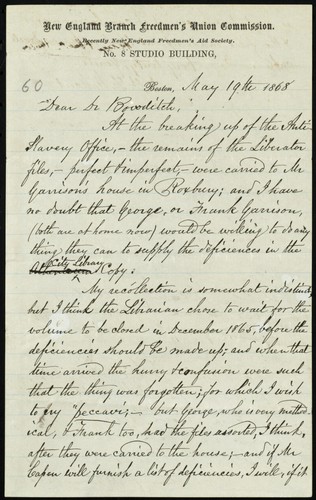 New England Branch Freedmen's Union Commission.
Recently New England Freedmen's Aid Society.
No. 8 STUDIO BUILDING,
60
Boston, May 19th 1868
Dear Dr Bowditch,
At the breaking up of the Anti-
Slavery Office,- the remains of the Liberator
files,- perfect & imperfect,- were carried to Mr
Garrison's house in Roxbury; and I have
no doubt that George, or Frank Garrison,
(both are at home now) would be willing to do any
thing they can to supply the deficiencies in the
City Library
Copy.
My recollection is somewhat indistinct,
but I think the Librarian chose to wait for the
volume to be closed in December 1865, before the
deficiencies should be made up; and when that
time arrived the hurry & confusion were such
that the thing was forgotten;- for which I wish
to cry "peccavi;- but George, who is very method-
ical, & Frank too, had the files assorted, I think,
after they were carried to the house;- and if Mr
Capen will furnish a list of deficiencies, I will, if it